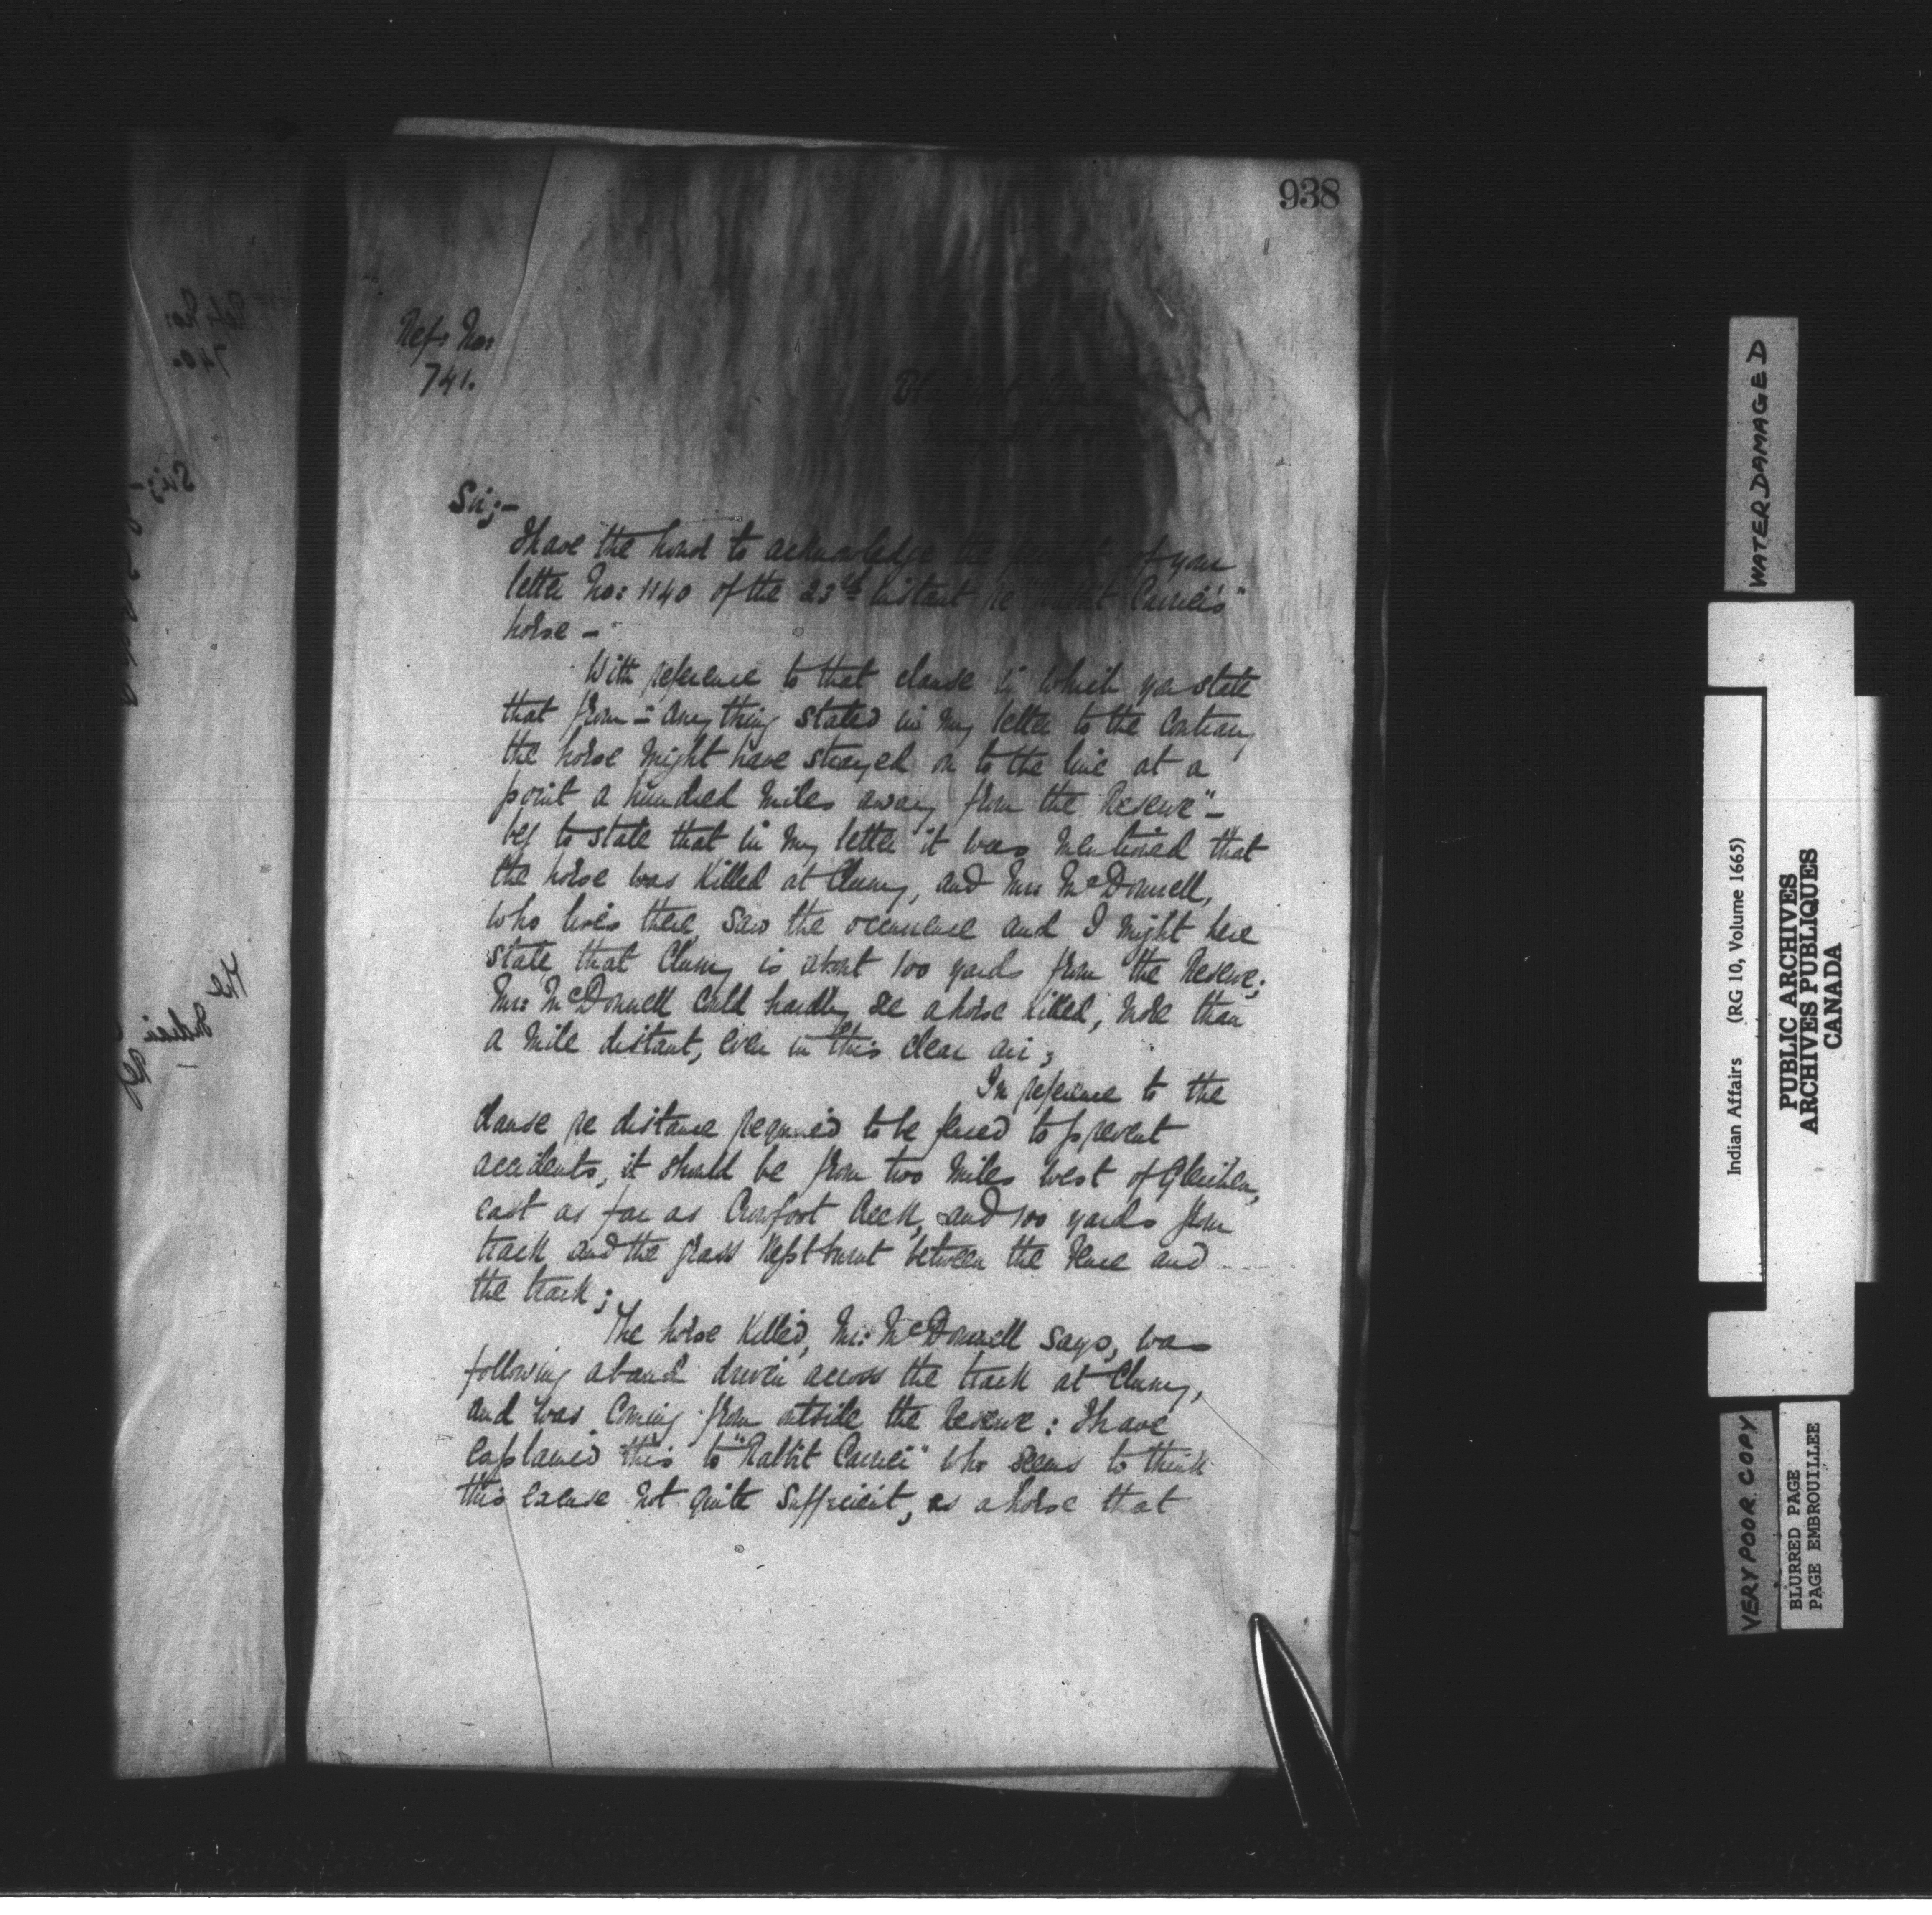 938
Ref: No:
741.
Sir;-
I have the honor to acknowledge the receipt of your
letter No: 1140 of the 23rd Instant re "Rabbit Carrier's"
horse -
With reference to that clause in which you state
that from "anything stated in my letter to the contrary
the horse might have strayed on to the line at a
point a hundred miles away from the Reserve" -
beg to state that in my letter it was mentioned that
the horse was killed at Cluny, and Mr: McDonnell,
who lives there, saw the occurrence and I might here
state that Cluny is about 100 yards from the Reserve;
Mr: McDonnell could hardly see a horse killed, more than
a mile distant, even in this clear air;
In reference to the
clause re distance required to be fenced to prevent
accidents, it should be from two miles west of Gleichen,
east as far as Crowfoot Creek, and 100 yards from
track and the grass kept burnt between the fence and
the track;
The horse killed, Mr: McDonnell says, was
following a band driven across the track at Cluny,
and was coming from outside the Reserve: I have
explained this to "Rabbit Carrier" who seems to think
this excuse not quite sufficient, as a horse that
WATER DAMAGED
Indian Affairs (RG 10, Volume 1665)
PUBLIC ARCHIVES
ARCHIVES PUBLIQUES
CANADA
VERY POOR COPY
BLURRED PAGE
PAGE EMBROUILLEE